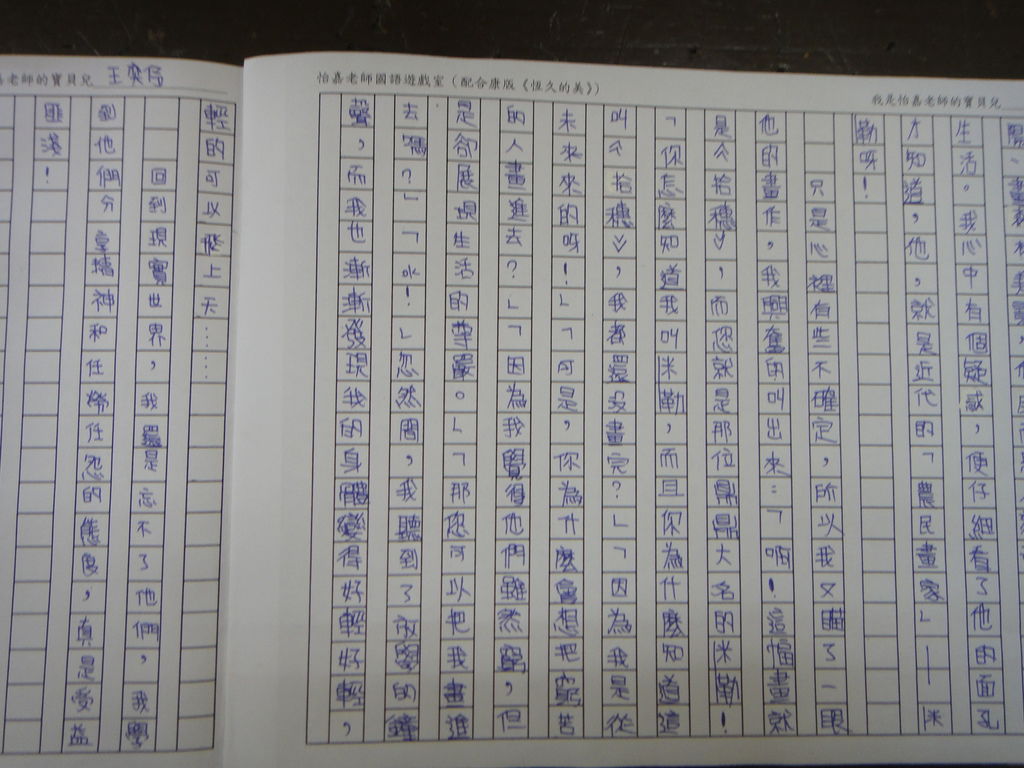 怡嘉老師國語遊戲室（配合康版《恆久的美》）
我是怡嘉老師的寶貝兒
生活。我心中有個疑惑，便仔細看了他的面孔
才知道，他，就是近代的「農民畫家」——米
勒呀！
只是心裡有些不確定，所以我又瞄了一眼
他的畫作，我興奮的叫出來：「啊！這幅畫就
是＜拾穗＞，而您就是那位鼎鼎大名的米勒！
「你怎麼知道我叫米勒，而且你為什麼知道這
叫＜拾穗＞，我都還沒畫完？」「因為我是從
未來來的呀！」「可是，你為什麼會想把窮苦
的人畫進去？」「因為我覺得他們雖然窮，但
是卻展現生活的尊嚴。」「那您可以把我畫進
去嗎？」「ㄛ！」忽然間，我聽到了放學的鐘
聲，而我也漸漸發現我的身體變得好輕好輕，
老師的寶貝兒
輕的可以飛上天……
回到現實世界，我還是忘不了他們，我學
到他們分享精神和任勞任怨的態度，真是受益
匪淺！